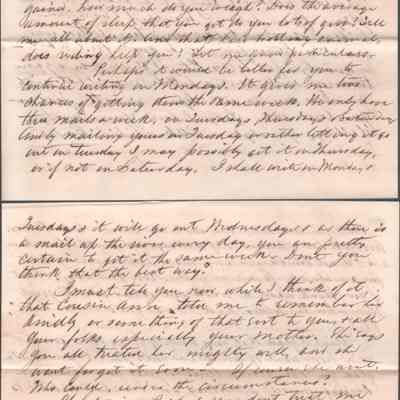 gained, how much do you weigh? Does the average
amount of sleep that you get do you lots of good? Tell
me all about it. And that
does riding help you? Let me have particulars.
Perhaps it would be better for you to
continue writing on Mondays. It gives me two
chances of getting them the same week. We only have
three mails a week, on Tuesdays, Thursdays & Saturdays
And by mailing yours on Tuesday or rather letting it go
out on Tuesday I may possibly get it on Thursday,
or if not on Saturday. I shall write on Mondays &
Tuesdays & it will go out Wednesdays, & as there is
a mail up the river every day, you are pretty
certain to get it the same week. Don't you
think that the best way?
I must tell you now, while I think of it,
that Cousin Ann told me to remember her
kindly or something of that sort to you, & all
your folks especially your mother. She says
you all treated her mighty well, and she
wont forget it soon. Of course she wont.
Who could, under the circumstances?
dont trust me